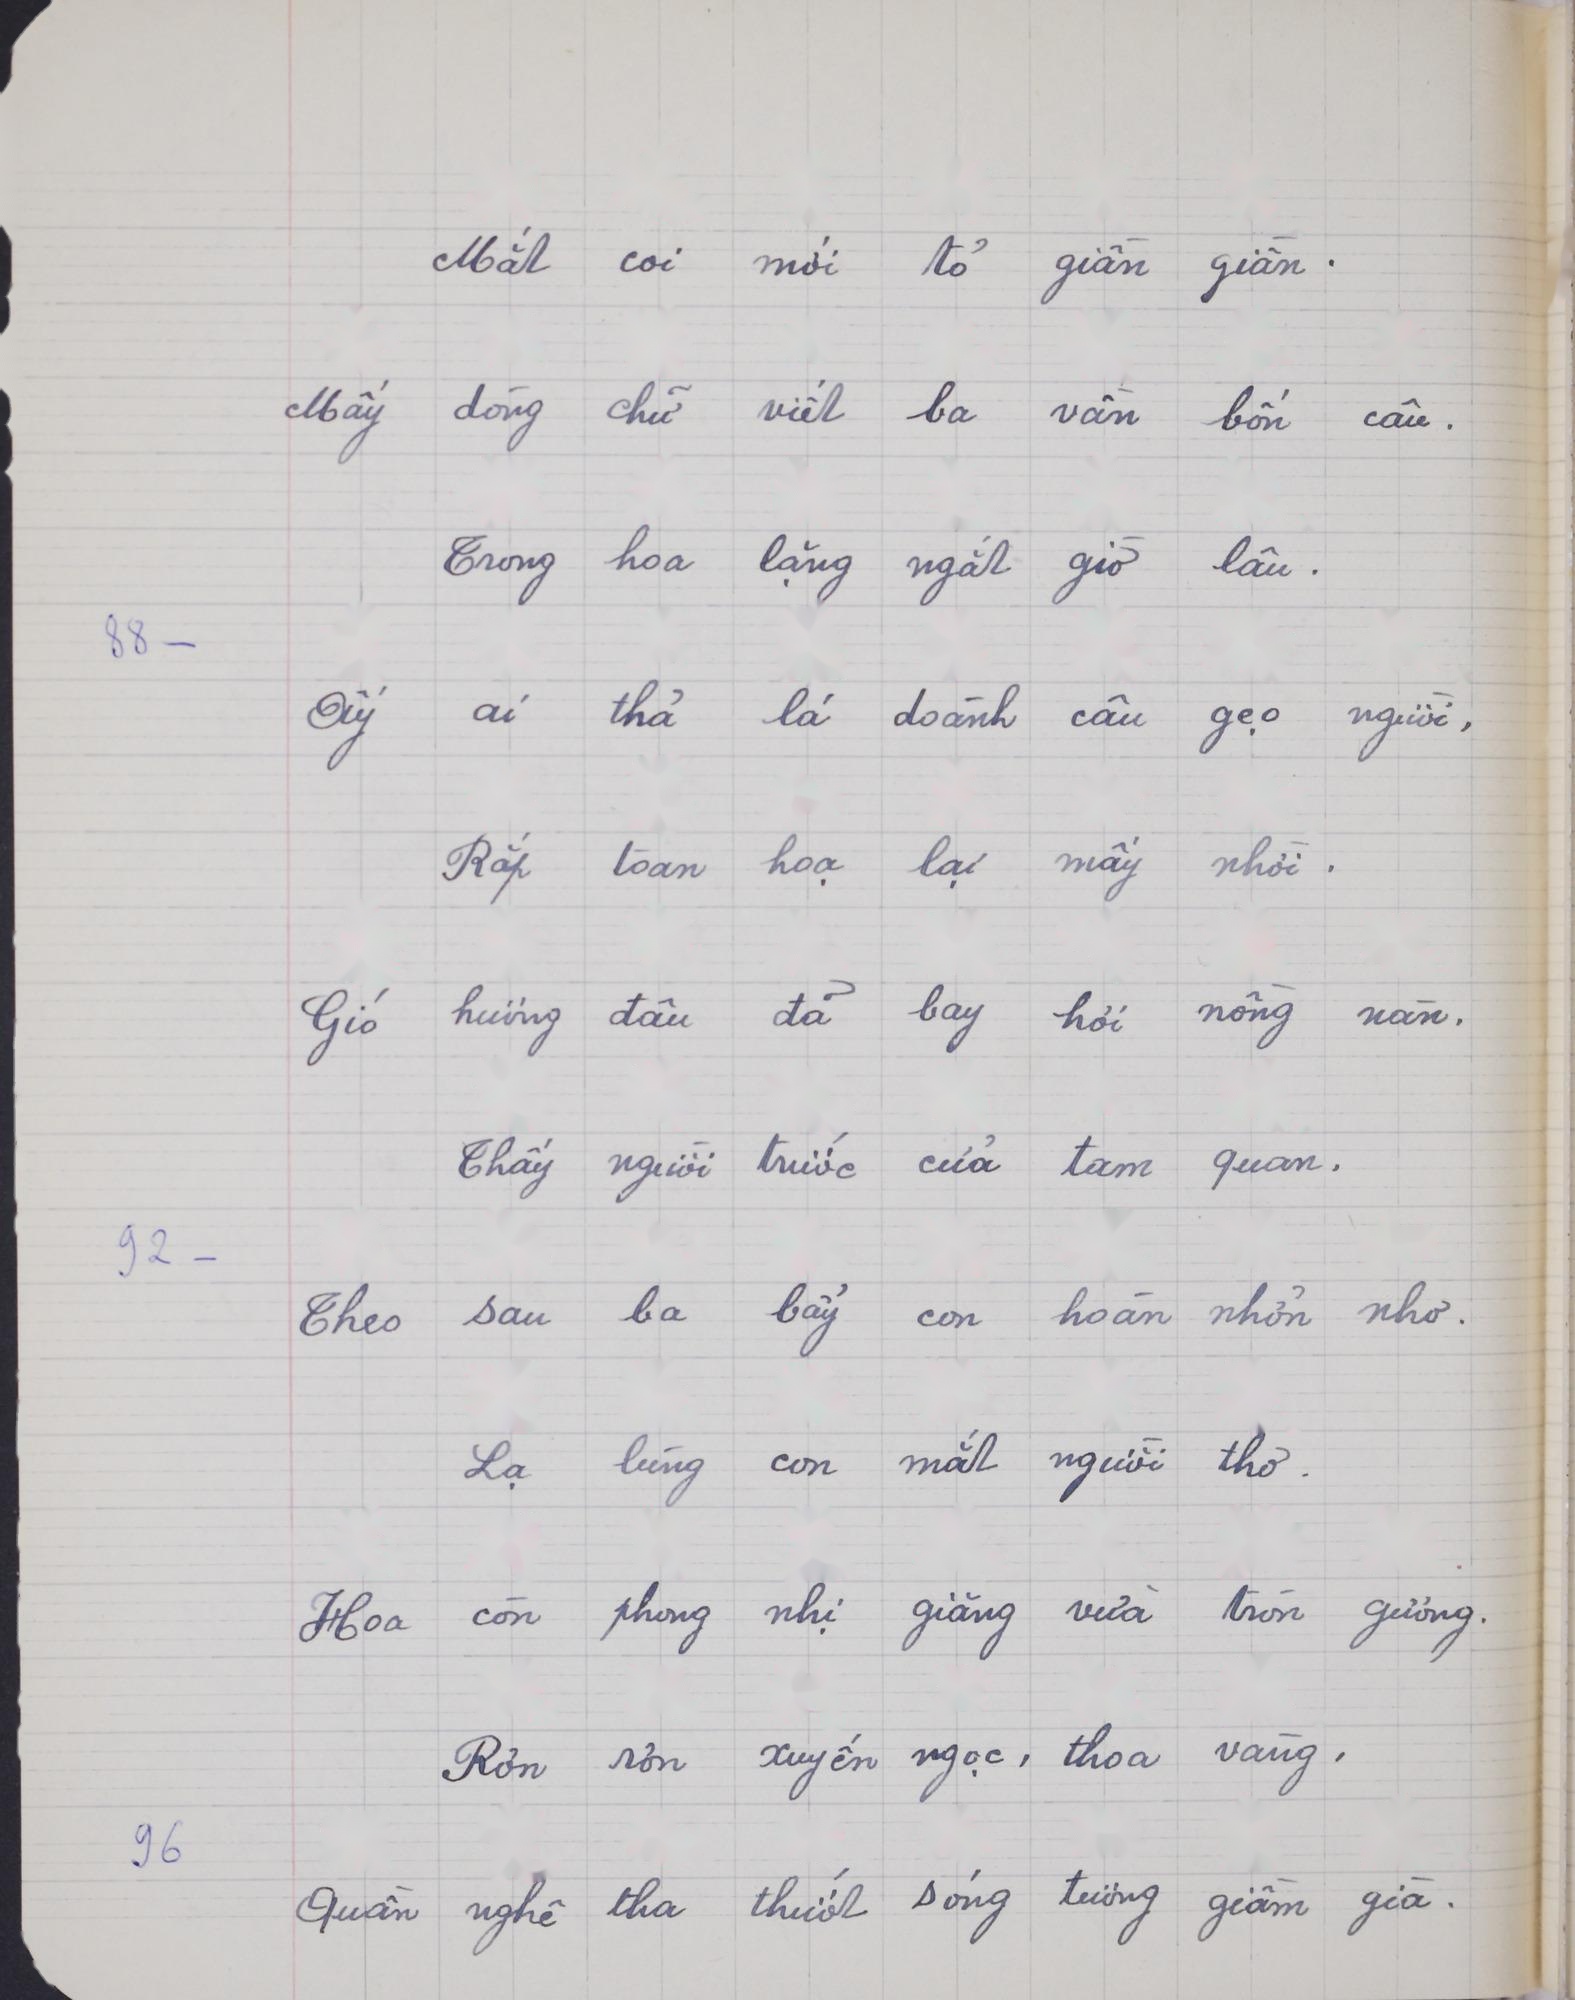 Mắt coi mới tỏ giần giần.
Mấy dòng chữ viết ba vần bốn câu.
Trong hoa lặng ngắt giờ lâu.
88 –
Ấy ai thả lá doành câu gẹo người,
Rắp toan hoạ lại mấy nhời.
Gió hương đâu đã bay hơi nồng nàn.
Thấy người trước cửa tam quan.
92 –
Theo sau ba bảy con hoàn nhởn nhơ.
Lạ lùng con mắt người thơ.
Hoa còn phong nhị giăng vừa tròn gương.
Rởn rởn xuyến ngọc, thoa vàng,
96
Quần nghê tha thướt sóng tương giầm già.